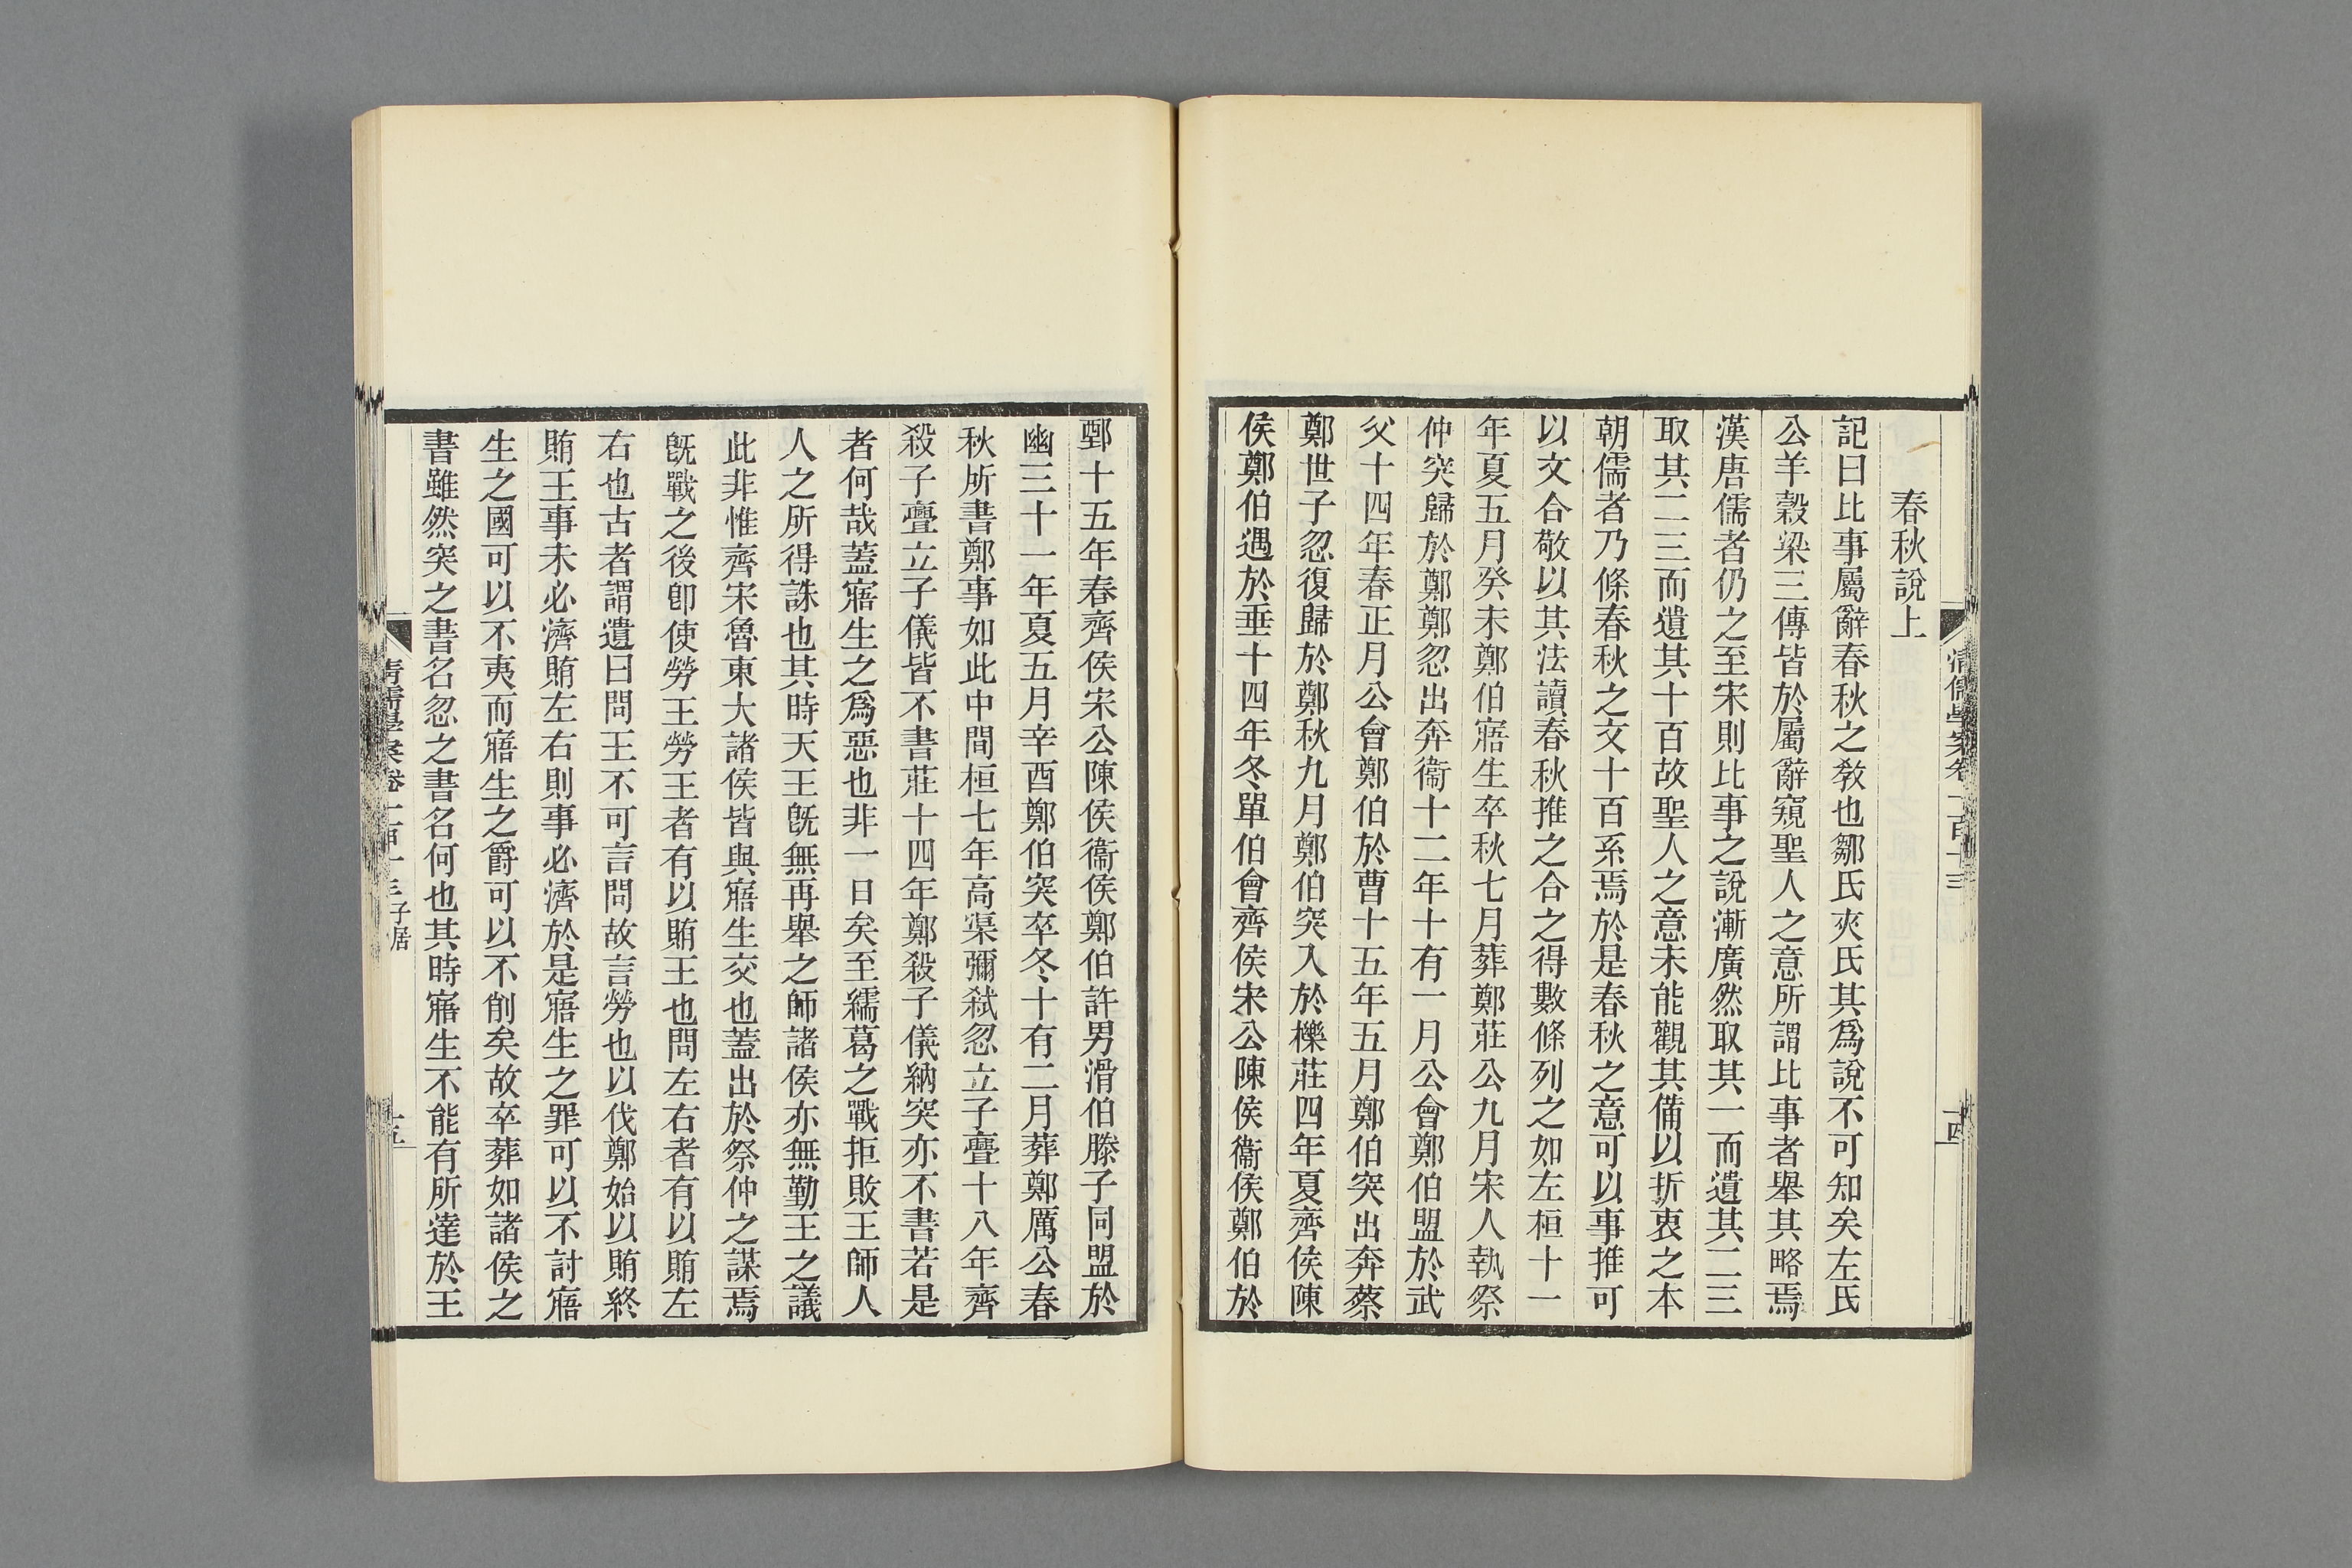 春秋說上
記曰比事屬辭春秋之敎也鄒氏夾氏其爲說不可知矣左氏
公羊穀梁三傳皆於屬辭窺聖人之意所謂比事者舉其略焉
漢唐儒者仍之至宋則比事之說漸廣然取其一而遺其二三
取其二三而遺其十百故聖人之意未能觀其備以折衷之本
朝儒者乃條春秋之文十百系焉於是春秋之意可以事推可
以文合敬以其法讀春秋推之合之得數條列之如左桓十一
年夏五月癸未鄭伯寤生卒秋七月葬鄭莊公九月宋人執祭
仲突歸於鄭鄭忽出奔衞十二年十有一月公會鄭伯盟於武
父十四年春正月公會鄭伯於曹十五年五月鄭伯突出奔蔡
鄭世子忽復歸於鄭秋九月鄭伯突入於櫟莊四年夏齊侯陳
侯鄭伯遇於垂十四年冬單伯會齊侯宋公陳侯衞侯鄭伯於
鄄十五年春齊侯宋公陳侯衞侯鄭伯許男滑伯滕子同盟於
幽三十一年夏五月辛酉鄭伯突卒冬十有二月葬鄭厲公春
秋所書鄭事如此中間桓七年高渠彌弑忽立子亹十八年齊
殺子亹立子儀皆不書莊十四年鄭殺子儀納突亦不書若是
者何哉蓋寤生之爲惡也非一日矣至繻葛之戰拒敗王師人
人之所得誅也其時天王旣無再舉之師諸侯亦無勤王之議
此非惟齊宋魯東大諸侯皆與寤生交也蓋出於祭仲之謀焉
旣戰之後卽使勞王勞王者有以賄王也問左右者有以賄左
右也古者謂遺曰問王不可言問故言勞也以伐鄭始以賄終
賄王事未必濟賄左右則事必濟於是寤生之罪可以不討寤
生之國可以不夷而寤生之爵可以不削矣故卒葬如諸侯之
書雖然突之書名忽之書名何也其時寤生不能有所達於王
清儒學案卷一百十三
十四
清儒學案卷一百十三 子居
十五